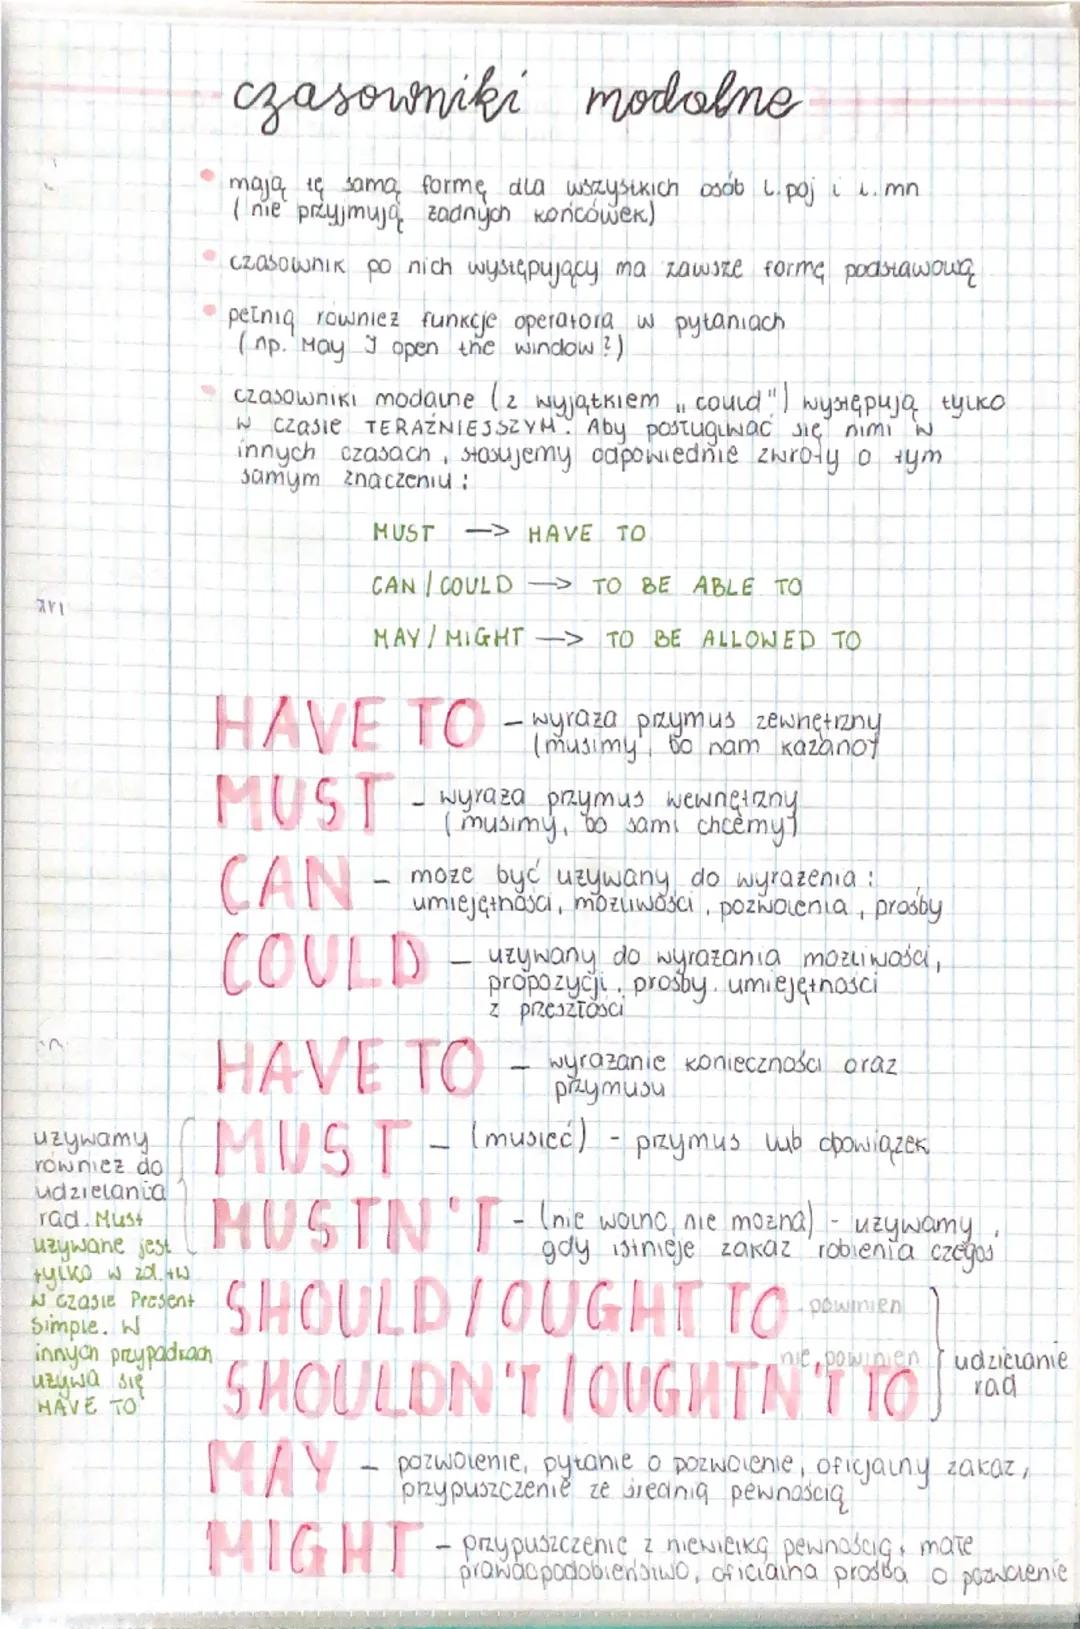 czasowniki modalne
• mają tę samą formę dla wszystkich osób l.poj i l.mn
(nie przyjmują żadnych końcówek)
• czasownik po nich występujący ma zawsze formę podstawową
• pełnią również funkcje operatora w pytaniach
(np. May I open the window?)
• czasowniki modalne (z wyjątkiem „could") występują tylko
w czasie TERAŹNIEJSZYM. Aby posługiwać się nimi w
innych czasach, stosujemy odpowiednie zwroty o tym
samym znaczeniu:
MUST —> HAVE TO
CAN / COULD —> TO BE ABLE TO
MAY / MIGHT —> TO BE ALLOWED TO
HAVE TO – wyraża przymus zewnętrzny
(musimy, bo nam kazano)
MUST – wyraża przymus wewnętrzny
(musimy, bo sami chcemy)
CAN – może być używany do wyrażenia:
umiejętności, możliwości, pozwolenia, prośby
COULD – używany do wyrażania możliwości,
propozycji, prośby. umiejętności
z przeszłości
HAVE TO – wyrażanie konieczności oraz
przymusu
MUST – (musieć) - przymus lub obowiązek
MUSTN'T - (nie wolno, nie można) - używamy,
gdy istnieje zakaz robienia czegoś
używamy
również do
udzielania
rad. Must
używane jest
tylko w zd. tw
w czasie Present
Simple. W
innych przypadkach
używa się
HAVE TO
SHOULD / OUGHT TO powinien
SHOULDN'T / OUGHTN'T TO nie powinien
udzielanie
rad
MAY – pozwolenie, pytanie o pozwolenie, oficjalny zakaz,
przypuszczenie ze średnią pewnością
MIGHT – przypuszczenie z niewielką pewnością, małe
prawdopodobieństwo, oficjalna prośba o pozwolenie